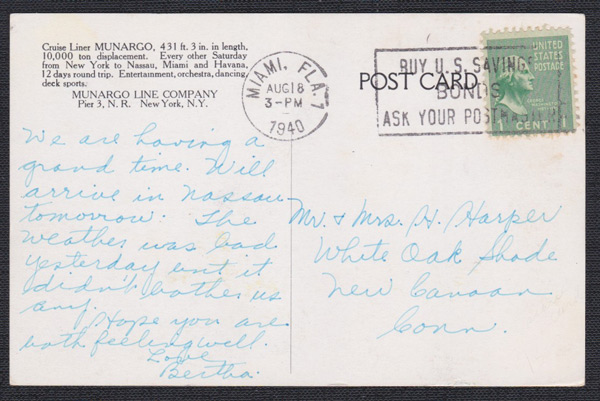 Cruise Liner MUNARGO, 431 ft. 3 in. in length,
10,000 ton displacement. Every other Saturday
from New York to Nassau, Miami and Havana,
12 days round trip. Entertainment, orchestra, dancing,
deck sports.
MUNARGO LINE COMPANY
Pier 3, N. R. New York, N.Y.
MIAMI, FLA. 7
AUG 18
3-PM
1940
POST CARD
BUY U.S. SAVINGS
BONDS
ASK YOUR POSTMASTER
UNITED
STATES
POSTAGE
1 CENT
We are having a
grand time. Will
arrive in Nassau
tomorrow. The
weather was bad
yesterday but it
didn't bother us
any.
Hope you are
both feeling well.
Love,
Bertha.
Mr. & Mrs. H. Harper
White Oak Shade
New Canaan
Conn.